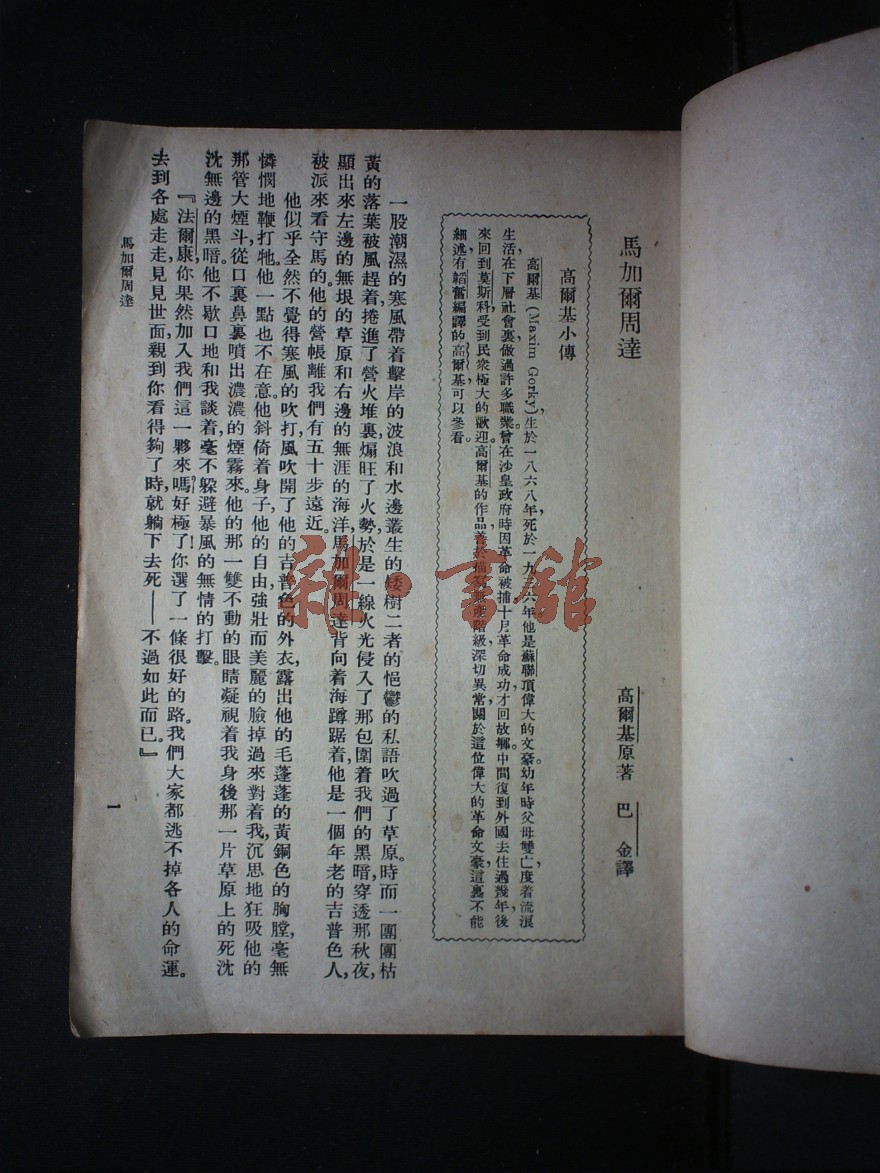 馬加爾周達
高爾基原著 巴 金譯
高爾基小傳
高爾基(Maxim Gorky)，生於一八六八年，死於一九三六年。他是蘇聯頂偉大的文豪。幼年時父母雙亡，度着流浪
生活，在下層社會裏做過許多職業。曾在沙皇政府時因革命被捕，十月革命成功，才回故鄉。中間復到外國去住過幾年，後
來回到莫斯科，受到民衆極大的歡迎。高爾基的作品善於描寫 階級，深切異常。關於這位偉大的革命文豪，這裏不能
細述，有韜奮編譯的高爾基，可以參看。
一股潮濕的寒風帶着擊岸的波浪和水邊叢生的矮樹二者的悒鬱的私語吹過了草原。時而一團團枯
黃的落葉被風趕着捲進了營火堆裏，煽旺了火勢。於是一線火光侵入了那包圍着我們的黑暗，穿透那秋夜，
顯出來左邊的無垠的草原和右邊的無涯的海洋，馬加爾周達背向着海蹲踞着，他是一個年老的吉普色人，
被派來看守馬的。他的營帳離我們有五十步遠近。
他似乎全然不覺得寒風的吹打，風吹開了他的吉普色的外衣，露出他的毛蓬蓬的黃銅色的胸膛，毫無
憐憫地鞭打牠。他一點也不在意。他斜倚着身子，他的自由，強壯而美麗的臉掉過來對着我，沉思地狂吸他的
那管大煙斗，從口裏鼻裏噴出濃濃的煙霧來。他的那一雙不動的眼睛凝視着我身後那一片草原上的死沈
沈無邊的黑暗。他不歇口地和我談着，毫不躲避暴風的無情的打擊。
『法爾康，你果然加入我們這一夥來嗎？好極了！你選了一條很好的路。我們大家都逃不掉各人的命運。
去到各處走走，見見世面，親到你看得夠了時，就躺下去死——不過如此而已。』
馬加爾周達
一
雜·書館